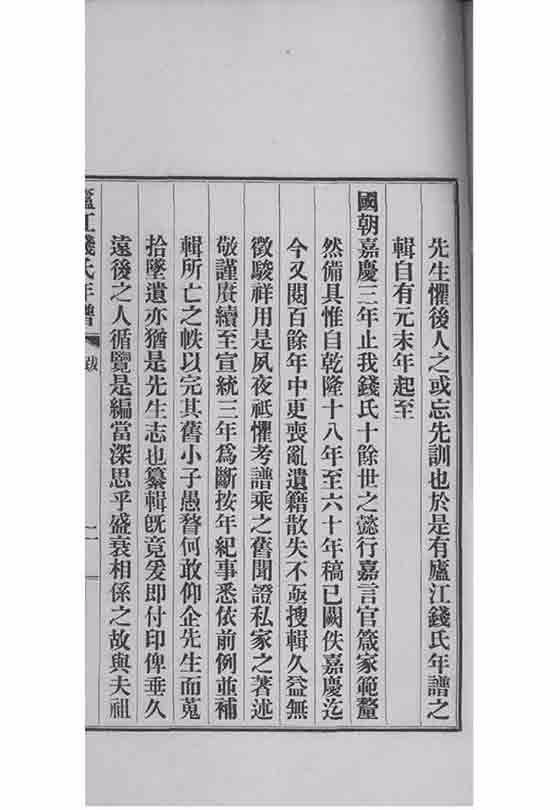 先生懼後人之或忘先訓也於是有廬江錢氏年譜之
輯自有元末年起至
國朝嘉慶三年止我錢氏十餘世之懿行嘉言官箴家範釐
然備具惟自乾隆十八年至六十年稿已闕佚嘉慶迄
今又閱百餘年中更喪亂遺籍散失不亟搜輯久益無
徵駿祥用是夙夜祗懼考譜乘之舊聞證私家之著述
敬謹賡續至宣統三年爲斷按年紀事悉依前例並補
輯所亡之帙以完其舊小子愚瞀何敢仰企先生而蒐
拾墜遺亦猶是先生志也纂輯旣竟爰即付印俾垂久
遠後之人循覽是編當深思乎盛衰相係之故與夫祖
廬江錢氏年譜 跋 二